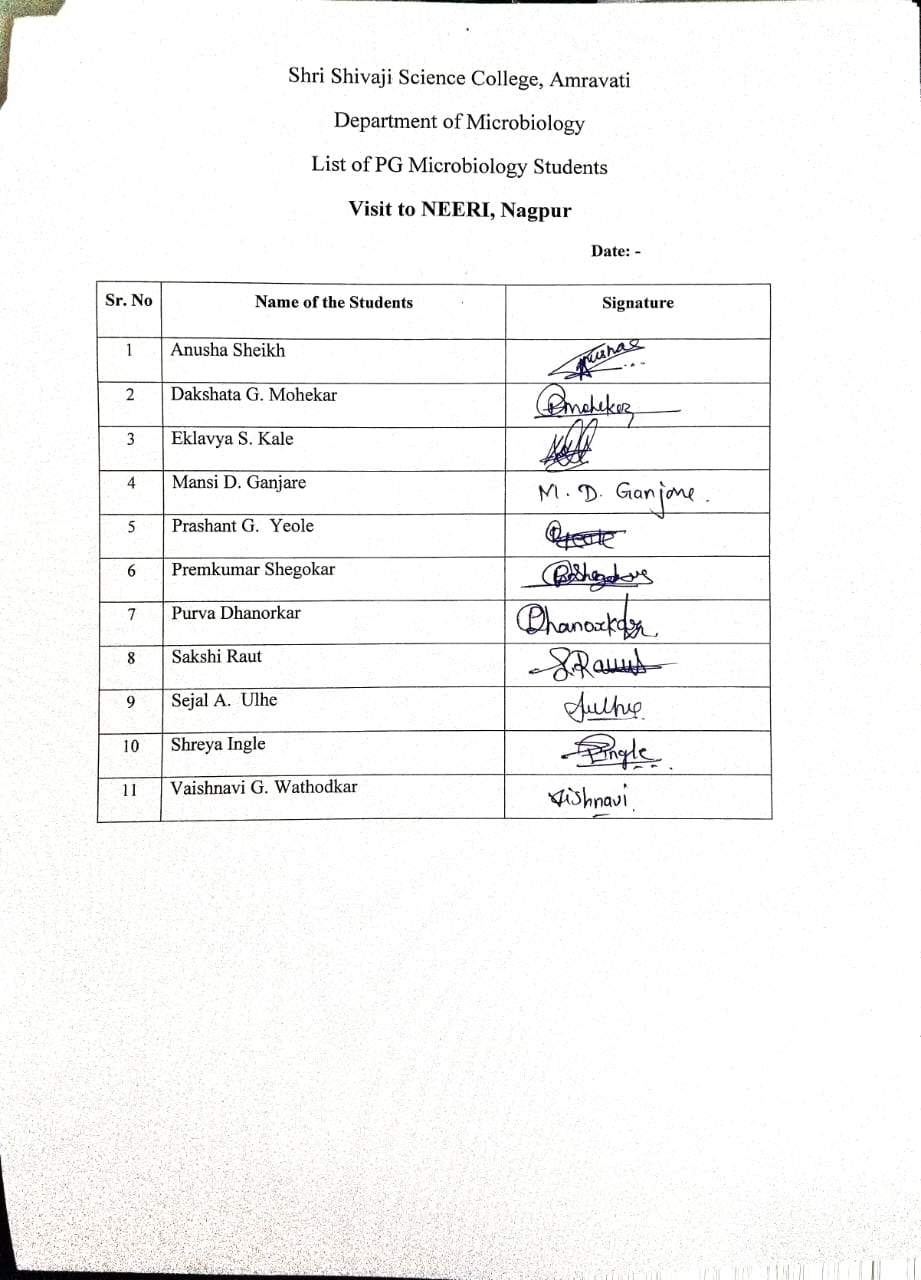 Shri Shivaji Science College, Amravati
Department of Microbiology
List of PG Microbiology Students
Visit to NEERI, Nagpur
Date: -
Sr. No Name of the Students Signature
1 Anusha Sheikh
2 Dakshata G. Mohekar
3 Eklavya S. Kale
4 Mansi D. Ganjare M. D. Ganjare.
5 Prashant G. Yeole
6 Premkumar Shegokar
7 Purva Dhanorkar
8 Sakshi Raut S.Raut
9 Sejal A. Ulhe
10 Shreya Ingle
11 Vaishnavi G. Wathodkar